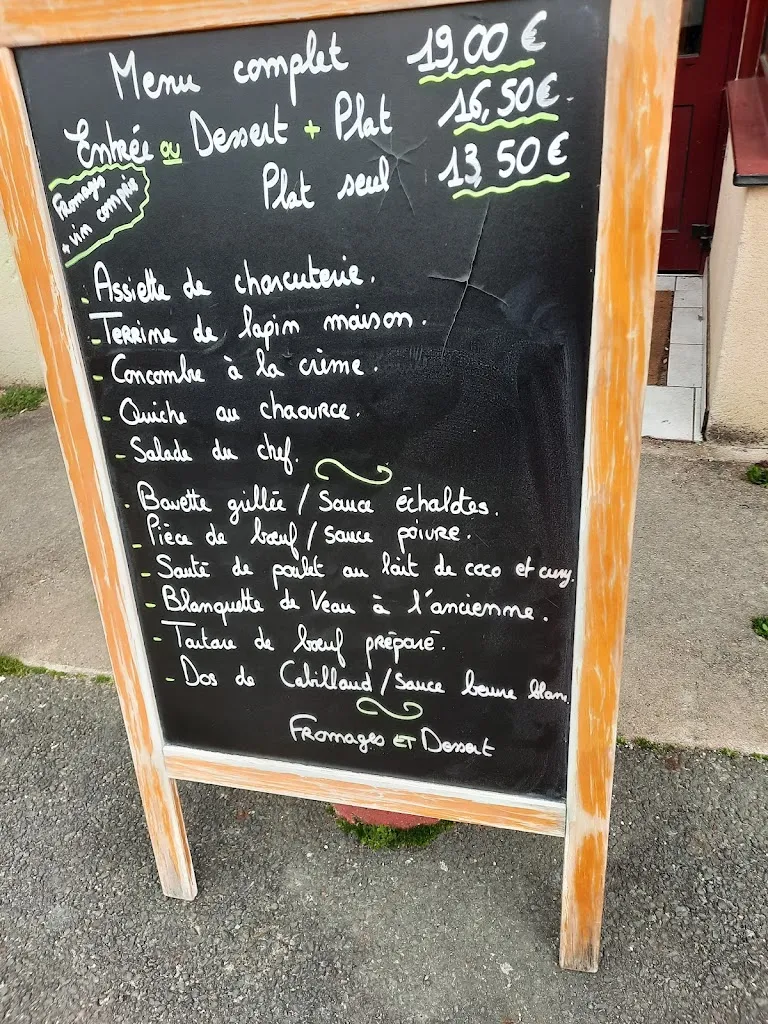 Menu complet 19,00 €
Entrée ou Dessert + Plat 16,50€
Plat seul 13,50 €
Fromages
+ vin compris
- Assiette de charcuterie.
- Terrine de lapin maison.
- Concombre à la crème.
- Quiche au chaource.
- Salade du chef.
- Bavette grillée / Sauce échalotes.
- Pièce de bœuf / sauce poivre.
- Sauté de poulet au lait de coco et curry.
- Blanquette de Veau à l'ancienne.
- Tartare de bœuf préparé.
- Dos de Cabillaud / Sauce beurre blanc.
Fromages ET Dessert